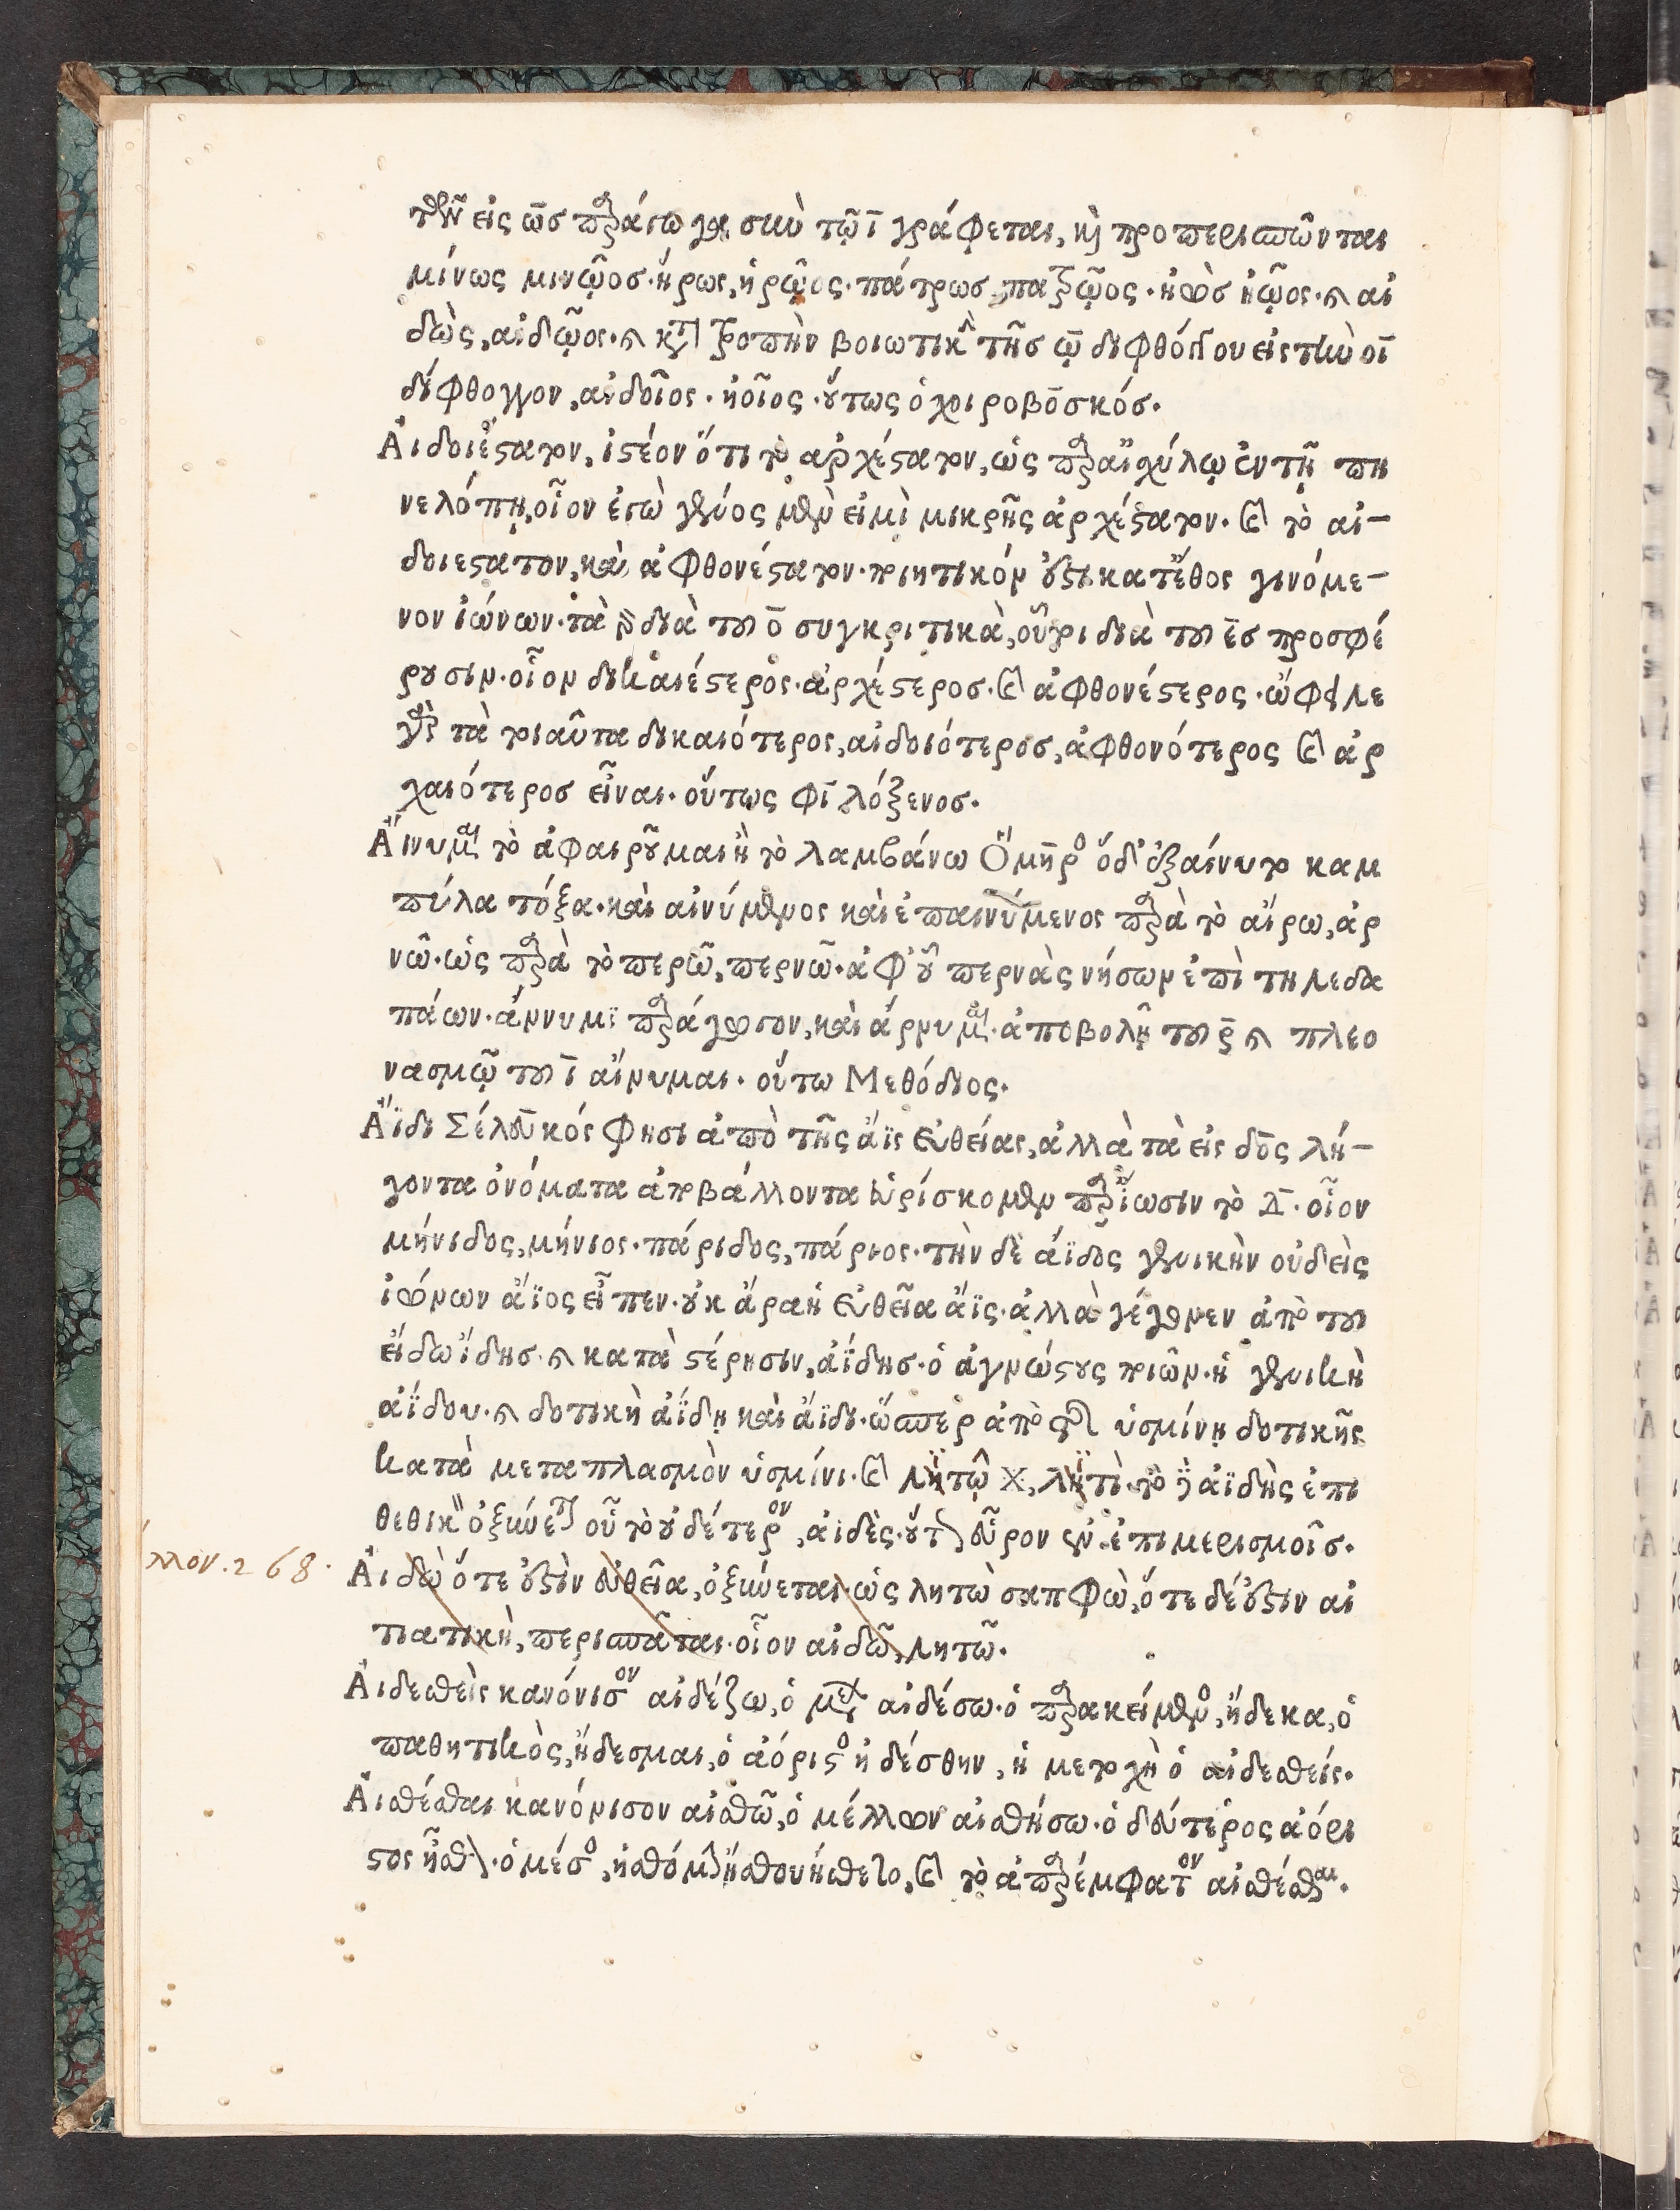 τῶν εἰς ως παράγωγα σὺν τῷ ῑ γράφεται, καὶ προπερισπῶνται
μίνως μινῷοσ· ἥρως, ἡρῷος· πάτρωσ, πατρῷος· ἠὼσ ἠῷος· καὶ αἰ
δὼς, αἰδῷος· καὶ κατὰ τροπὴν βοιωτικὴν τῆσ ῳ διφθόγγου εἰς τὴν οῑ
δίφθογγον, αἰδοῖος· ἠοῖος· οὕτως ὁ χοιροβοσκόσ.
Αἰδοιέστατον, ἰστέον ὅτι τὸ ἀρχέστατον, ὡς παρ αἰσχύλῳ ἐν τῇ πη
νελόπῃ, οἷον ἐγὼ γένος μέν εἰμι μικρῆς ἀρχέστατον· καὶ τὸ αἰ-
δοιεστατον, καὶ ἀφθονέστατον· ποιητικόν ἐστι κατ ἔθος γινόμε-
νον ἰώνων· τὰ γὰρ διὰ τοῦ ο̄ συγκριτικὰ, οὗτοι διὰ τοῦ ε̄σ προσφέ
ρουσιν· οἷον δικαιέστερος· ἀρχέστεροσ· καὶ ἀφθονέστερος· ὤφειλε
γὰρ τὰ τοιαῦτα δικαιότερος, αἰδοιότεροσ, ἀφθονότερος καὶ ἀρ
χαιότεροσ εἶναι· οὕτως φιλόξενοσ.
Αἴνυμαι τὸ ἀφαιροῦμαι ἢ τὸ λαμβάνω Ὅμηρος ὁ δ' ἐξαίνυτο καμ
πύλα τόξα· καὶ αἰνύμενος καὶ ἐπαινύμενος παρὰ τὸ αἴρω, ἀρ
νῶ· ὡς παρὰ τὸ περῶ, περνῶ· ἀφ' οὗ περνὰς νήσων ἐπὶ τηλεδα
πάων· ἄρνυμι παράγωγον, καὶ ἄρνυμαι· ἀποβολῇ τοῦ ρ̄ καὶ πλεο
νασμῷ τοῦ ῑ αἴνυμαι· οὕτω Μεθόδιος.
Ἄϊδι Σέλευκός φησι ἀπὸ τῆς ἄϊς εὐθείας, ἀλλὰ τὰ εἰς δος λή-
γοντα ὀνόματα ἀποβάλλοντα εὑρίσκομεν παρ ἴωσιν τὸ Δ̄· οἷον
μήνιδος, μήνιος· πάριδος, πάριος· τὴν δὲ ἄϊδος γενικὴν οὐδεὶς
ἰώνων ἄϊος εἶπεν· οὐκ ἄρα ἡ εὐθεῖα ἄϊς· ἀλλὰ γέγονεν ἀπὸ τοῦ
εἴδω ἴδησ· καὶ κατὰ στέρησιν, ἀΐδησ· ὁ ἀγνώστους ποιῶν· ἡ γενικὴ
αΐδου· καὶ δοτικὴ ἀΐδῃ καὶ ἄϊδι· ὥσπερ ἀπὸ τῆς ὑσμίνῃ δοτικῆς
κατὰ μεταπλασμὸν ὑσμίνι· καὶ λητῷ λητὶ· τὸ δὲ ἀϊδὴς ἐπι
θετικὸν ὀξύνεται οὗ τὸ οὐδέτερον, ἀϊδὲς· οὕτως εὗρον ἐν ἐπιμερισμοῖσ.
μον. 268. Αἰδὼ ὅτε ἐστὶν εὐθεῖα, ὀξύνεται· ὡς λητὼ σαπφὼ, ὅτε δέ ἐστιν αἰ
τιατικὴ, περισπᾶται· οἷον αἰδῶ, λητῶ.
Αἰδεσθεὶς κανόνισον αἰδέζω, ὁ μέλλων αἰδέσω· ὁ παρακείμενος, ᾔδεκα, ὁ
παθητικὸς, ᾔδεσμαι, ὁ ἀόριστος ᾐδέσθην, ἡ μετοχὴ ὁ αἰδεσθείς.
Αἰσθέσθαι κανόνισον αἰσθῶ, ὁ μέλλων αἰσθήσω· ὁ δεύτερος ἀόρι
στος ᾖσθον· ὁ μέσος, ᾐσθόμην ᾔσθου ᾔσθετο, καὶ τὸ ἀπαρέμφατον αἰσθέσθαι.